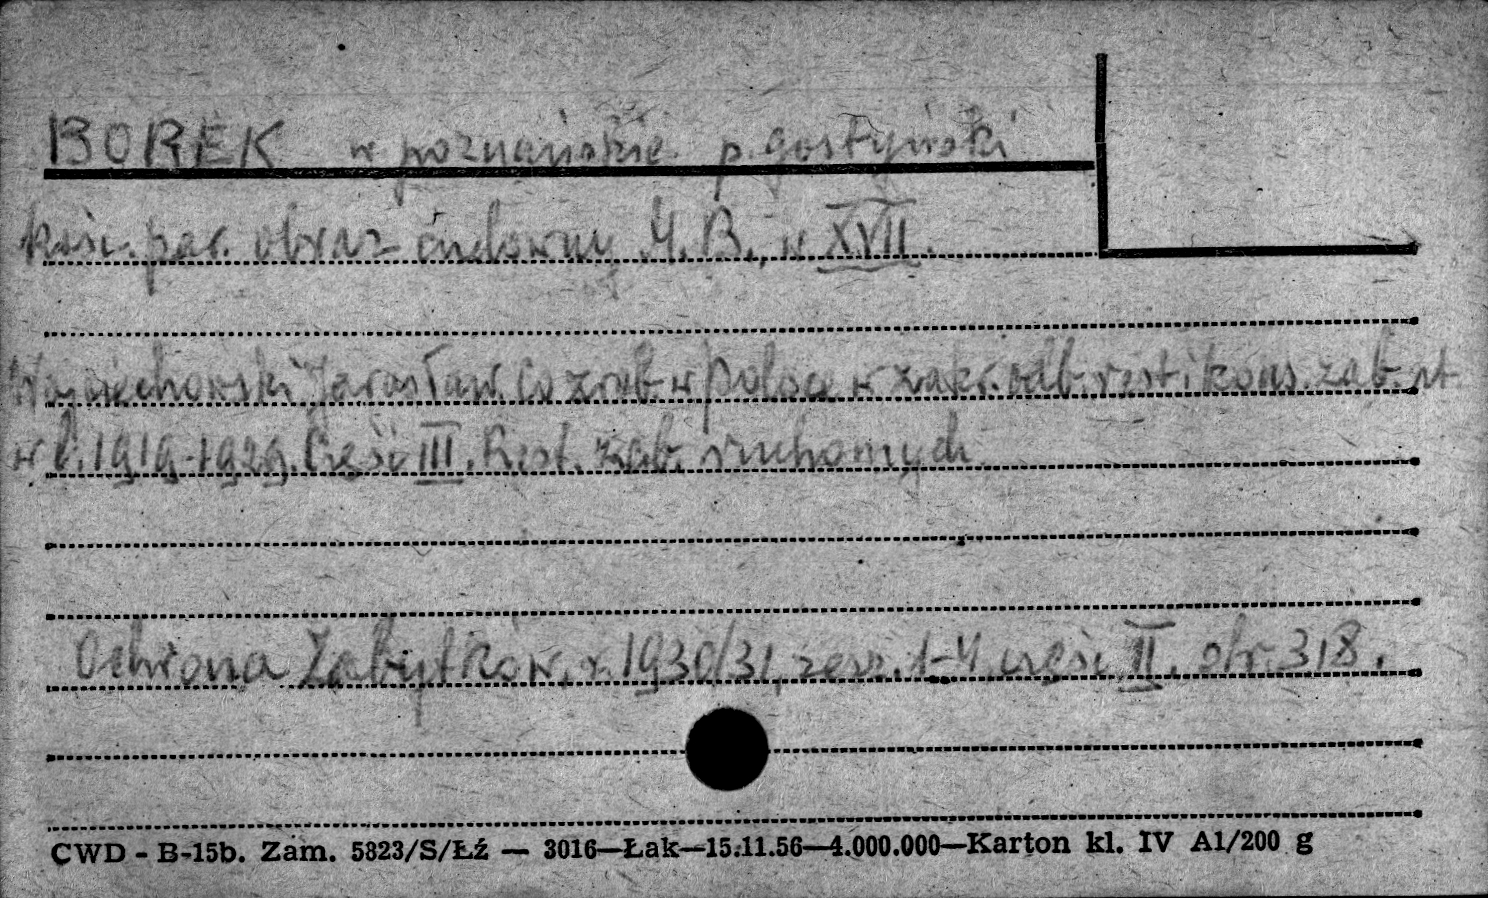 BOREK w poznańskie p. gostyński
kośc. par. obraz cudowny M. B., w XVII.
Wojciechowski Jarosław. Co zrob. w Polsce w zakr. odb. rest. i kons. zab. szt.
w l. 1919-1929. Część III. Rest. zab. ruchomych
Ochrona Zabytków, r. 1930/31, zesz. 1-4, część II. str. 318.
CWD - B-15b. Zam. 5823/S/Łź — 3016—Łak—15.11.56—4.000.000—Karton kl. IV A1/200 g